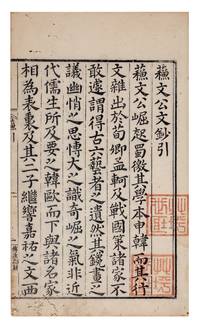 蘓文公文鈔引
蘓文公崛起蜀徼其學本申韓而其行
文雜出於荀卿孟軻及戰國策諸家不
敢遽謂得古六藝者之遺然其鑱畫之
議幽悄之思博大之識奇崛之氣非近
代儒生所及要之韓歐而下與諸名家
相為表裏及其二子繼響嘉祐之文西